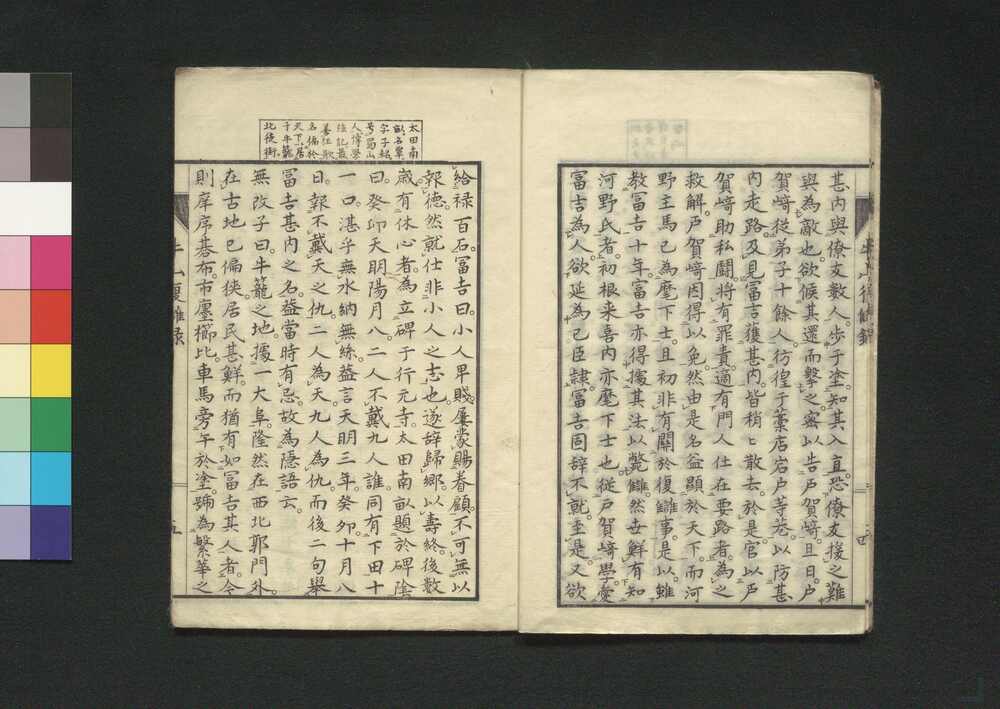 甚内與僚友數人。步于塗。知其入直。恐僚友援之難
與為敵也。欲候其還而擊之。密以告戸賀﨑。旦日。戸
賀﨑從弟子十餘人。彷徨于藁店岩戸等巷。以防甚
内走路。及見冨吉獲甚内。皆稍〻散去。於是。官以戸
賀﨑助私鬪。將有罪責。適有門人仕在要路者。為之
救解。戸賀﨑因得以免。然由是名益顯於天下。而河
野主馬已為麾下士。且初非有關於復讎事。是以雖
教冨吉十年。冨吉亦得據其法以斃讎。然世鮮有知
河野氏者。初根来喜内亦麾下士也。從戸賀﨑學。愛
冨吉為人。欲延為己臣隷。冨吉固辞不就。至是又欲
牛山復讎録
四
太田南
畝名覃
字子耜
号蜀山
人博學
強記最
善狂歌
名徧於
天下。居
于牛籠
北後街。
給禄百石。冨吉曰。小人卑賤。屢蒙賜眷顧。不可無以
報德。然就仕非小人之志也。遂辞歸鄉。以壽終。後數
歳。有休心者。為立碑于行元寺。太田南畝題於碑陰
曰。癸卯天明陽月八。二人不戴九人誰。同有下田十
一口。湛乎無水納無絲。益言天明三年癸卯十月八
日。報不戴天之仇。二人為天。九人為仇。而後二句舉
冨吉甚内之名。益當時有忌。故為隱語云。
無改子曰。牛籠之地。據一大阜。隆然在西北郭門外。
在古地已偏狹。居民甚鮮。而猶有如冨吉其人者。今
則庠序碁布。市廛櫛比。車馬旁午於塗。號為繁華之
牛山復讎録
五